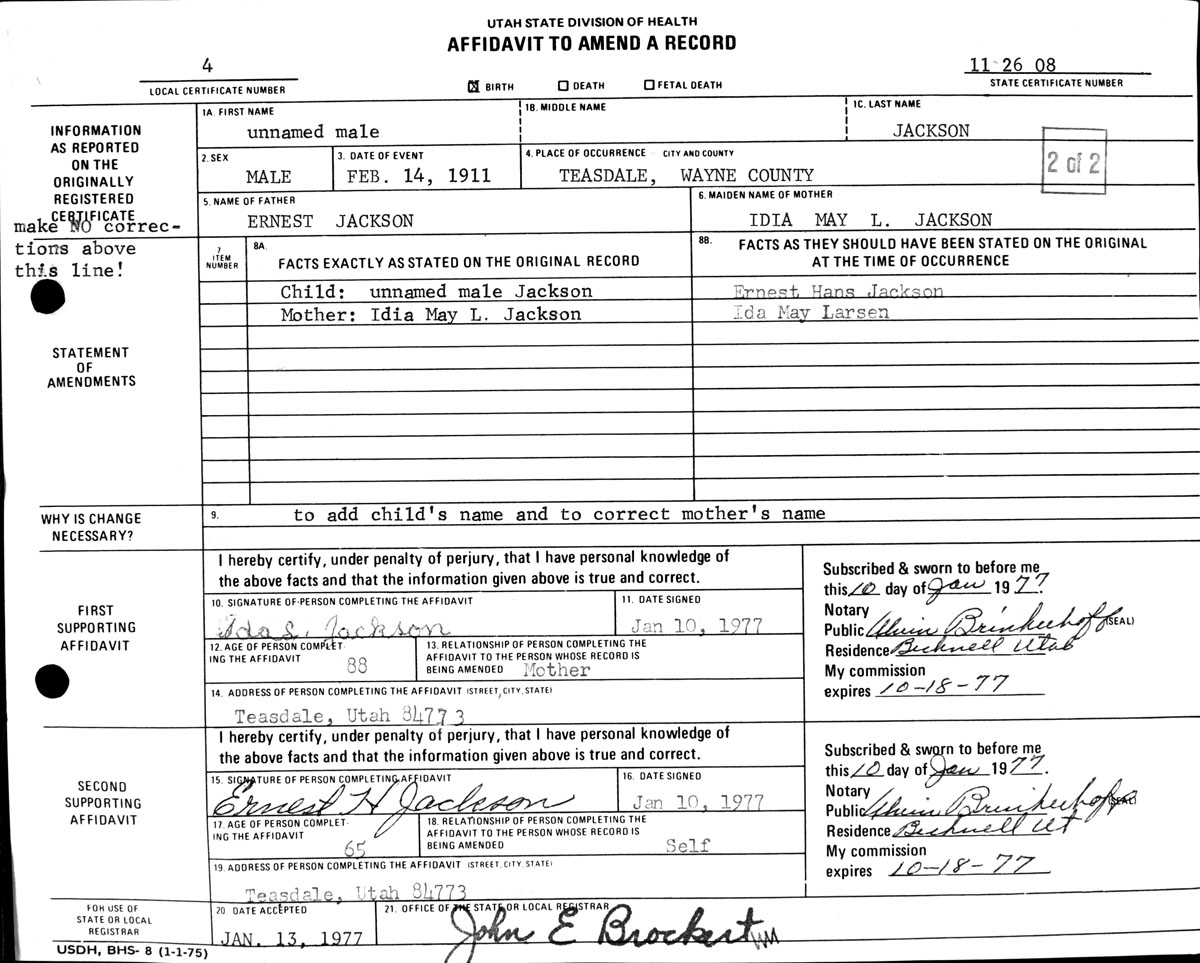 UTAH STATE DIVISION OF HEALTH
AFFIDAVIT TO AMEND A RECORD
4
LOCAL CERTIFICATE NUMBER
☒ BIRTH ☐ DEATH ☐ FETAL DEATH
11 26 08
STATE CERTIFICATE NUMBER
INFORMATION
AS REPORTED
ON THE
ORIGINALLY
REGISTERED
CERTIFICATE
make NO correc-
tions above
this line!
1A. FIRST NAME
unnamed male
1B. MIDDLE NAME
1C. LAST NAME
JACKSON
2. SEX
MALE
3. DATE OF EVENT
FEB. 14, 1911
4. PLACE OF OCCURRENCE - CITY AND COUNTY
TEASDALE, WAYNE COUNTY
2 of 2
5. NAME OF FATHER
ERNEST JACKSON
6. MAIDEN NAME OF MOTHER
IDIA MAY L. JACKSON
STATEMENT
OF
AMENDMENTS
7
ITEM
NUMBER
8A.
FACTS EXACTLY AS STATED ON THE ORIGINAL RECORD
8B. FACTS AS THEY SHOULD HAVE BEEN STATED ON THE ORIGINAL
AT THE TIME OF OCCURRENCE
Child: unnamed male Jackson
Ernest Hans Jackson
Mother: Idia May L. Jackson
Ida May Larsen
WHY IS CHANGE
NECESSARY?
9. to add child's name and to correct mother's name
FIRST
SUPPORTING
AFFIDAVIT
I hereby certify, under penalty of perjury, that I have personal knowledge of
the above facts and that the information given above is true and correct.
10. SIGNATURE OF PERSON COMPLETING THE AFFIDAVIT
Ida L. Jackson
11. DATE SIGNED
Jan 10, 1977
12. AGE OF PERSON COMPLET-
ING THE AFFIDAVIT
88
13. RELATIONSHIP OF PERSON COMPLETING THE
AFFIDAVIT TO THE PERSON WHOSE RECORD IS
BEING AMENDED Mother
14. ADDRESS OF PERSON COMPLETING THE AFFIDAVIT (STREET, CITY, STATE)
Teasdale, Utah 84773
Subscribed & sworn to before me
this 10 day of Jan 1977.
Notary
Public Alvin Brinkerhoff (SEAL)
Residence Bicknell Utah
My commission
expires 10-18-77
SECOND
SUPPORTING
AFFIDAVIT
I hereby certify, under penalty of perjury, that I have personal knowledge of
the above facts and that the information given above is true and correct.
15. SIGNATURE OF PERSON COMPLETING AFFIDAVIT
Ernest H Jackson
16. DATE SIGNED
Jan 10, 1977
17. AGE OF PERSON COMPLET-
ING THE AFFIDAVIT
65
18. RELATIONSHIP OF PERSON COMPLETING THE
AFFIDAVIT TO THE PERSON WHOSE RECORD IS
BEING AMENDED Self
19. ADDRESS OF PERSON COMPLETING THE AFFIDAVIT (STREET, CITY, STATE)
Teasdale, Utah 84773
Subscribed & sworn to before me
this 10 day of Jan 1977.
Notary
Public Alvin Brinkerhoff (SEAL)
Residence Bicknell Ut
My commission
expires 10-18-77
FOR USE OF
STATE OR LOCAL
REGISTRAR
20. DATE ACCEPTED
JAN. 13, 1977
21. OFFICE OF THE STATE OR LOCAL REGISTRAR
John E Brockert
USDH, BHS- 8 (1-1-75)